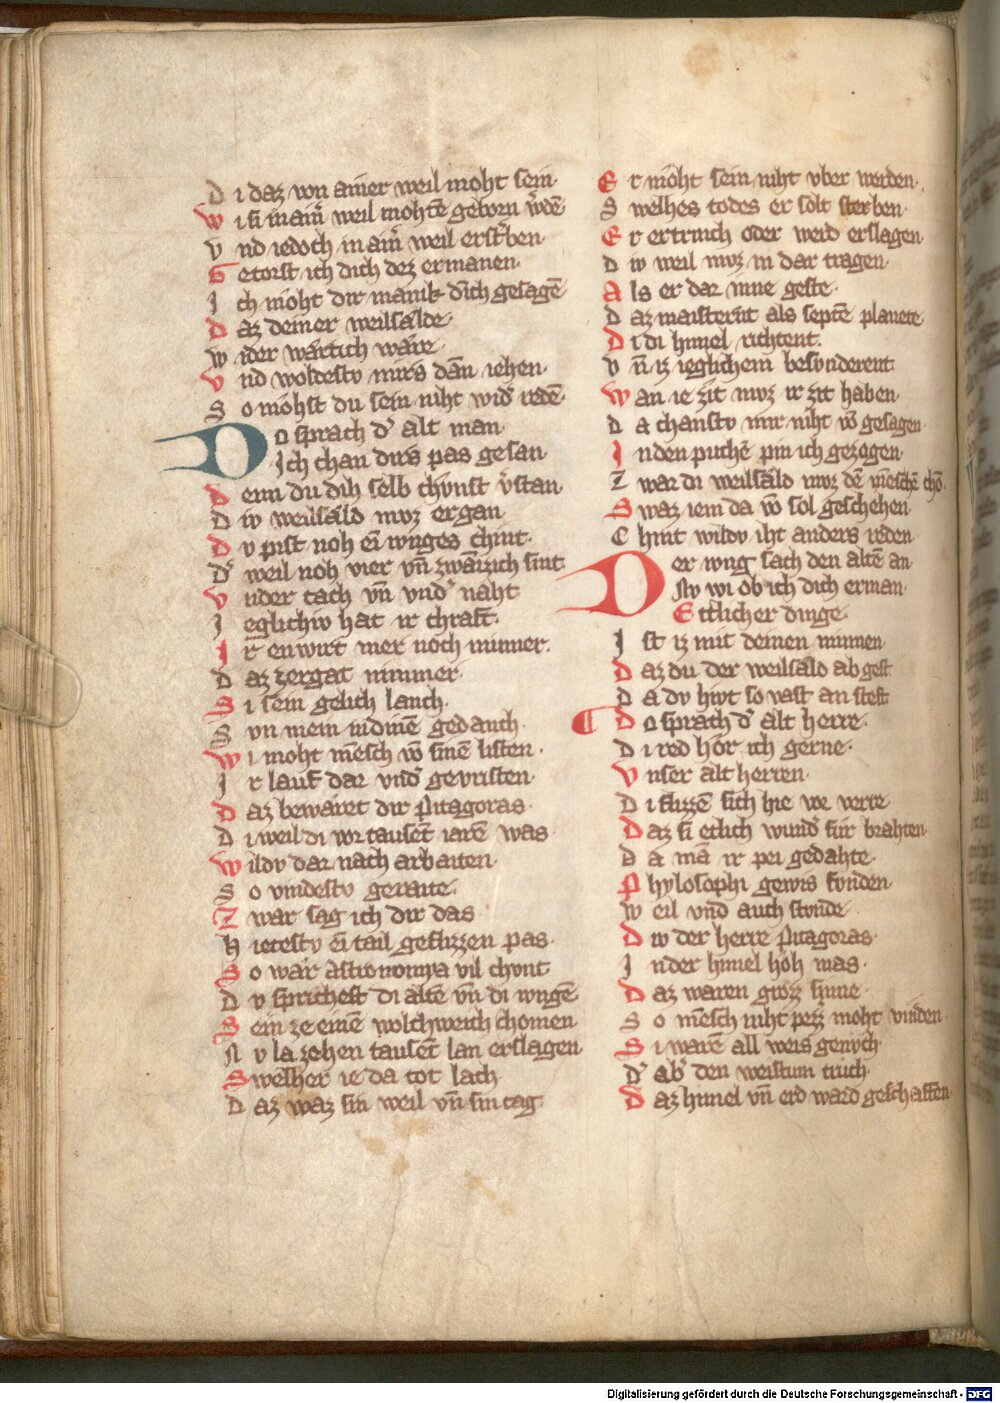 D i daz von ainer weil moht sein·
W i si in aim̄ weil mohtē geborn w̄dē
V nd iedoch in aim̄ weil erst̄ben
G etorst ich dich dez ermanen·
I ch moht dir manik dich gesagē
D az deiner weilsalde·
W ider wartich ware·
V nd woldestv mirs dān iehen·
S o mohst du sein niht wid̄ redē·
D o sprach d' alt man·
Ich chan dirs pas gesan
D enn du dih selb chvnst v̄stan
D iv weilsald mvz ergan·
D v pist noh ei ivnges chint·
D' weil noh vier vn̄ zwāinzich sint
V nder tach vn̄ vnd' naht
I eglichiv hat ir chraft·
I r enwirt mer noch minner·
D az zergat nimmer·
S i sein gelich lanch·
S vn mein nidmē gedanch·
W i moht mēsch vō sinē listen·
I r lauf dar vnd' gevristen·
D az bewaret dir Pitagoras·
D i weil di vor tausēt iarē was
W ildv dar nach arbaiten·
S o vindestv geraite·
Z war sag ich dir das
H ietestv ei tail gesizzen pas·
S o war astronomya vil chvnt
D v sprichest di altē vn̄ di ivngē
S ein ze einē wolchweich chomen
N v la zehen tausēt lan erslagen
S welher ie da tot lach·
D az waz sin weil vn̄ sin tag·
E r moht sein niht vber werden·
S welhes todes er solt sterben·
E r ertrinch oder werd erslagen·
D iv weil mvz in dar tragen·
A ls er dar inne geste·
D az maisternt als septē planete
D i di himel richtent·
V n̄ iz ieglichem besvnderent
W an ie zit mvz ir zit haben·
D a chanstv mir niht vō gesagen·
I nden puchē pin ich gezogen
Z war di weilsald mvz dē mēschē chō·
S waz iem da vō sol geschehen·
C hint wildv iht anders reden
D er ivng sach den altē an
Nv wi ob ich dich erman·
E ttlicher dinge·
I st iz mit deinen minnen
D az du der weilsald ab gest
D a dv hivt so vast an stest
D o sprach d' alt herre·
D i red hor ich gerne·
V nser alt herren·
D i flizzē sich hie vor verre
D az si etlich wund' für brahten
D a mā ir pei gedahte·
P hylosophi gewis fvnden
W eil vnd auch stvnde·
D iv der herre Pitagoras·
I nder himel hoh mas·
D az waren groz sinne·
S o mēsch niht pezz moht vinden·
S i warē all weis genvch·
D' ab' den weistum truch·
D az himel vn̄ erd ward geschaffen·
Digitalisierung gefördert durch die Deutsche Forschungsgemeinschaft - DFG